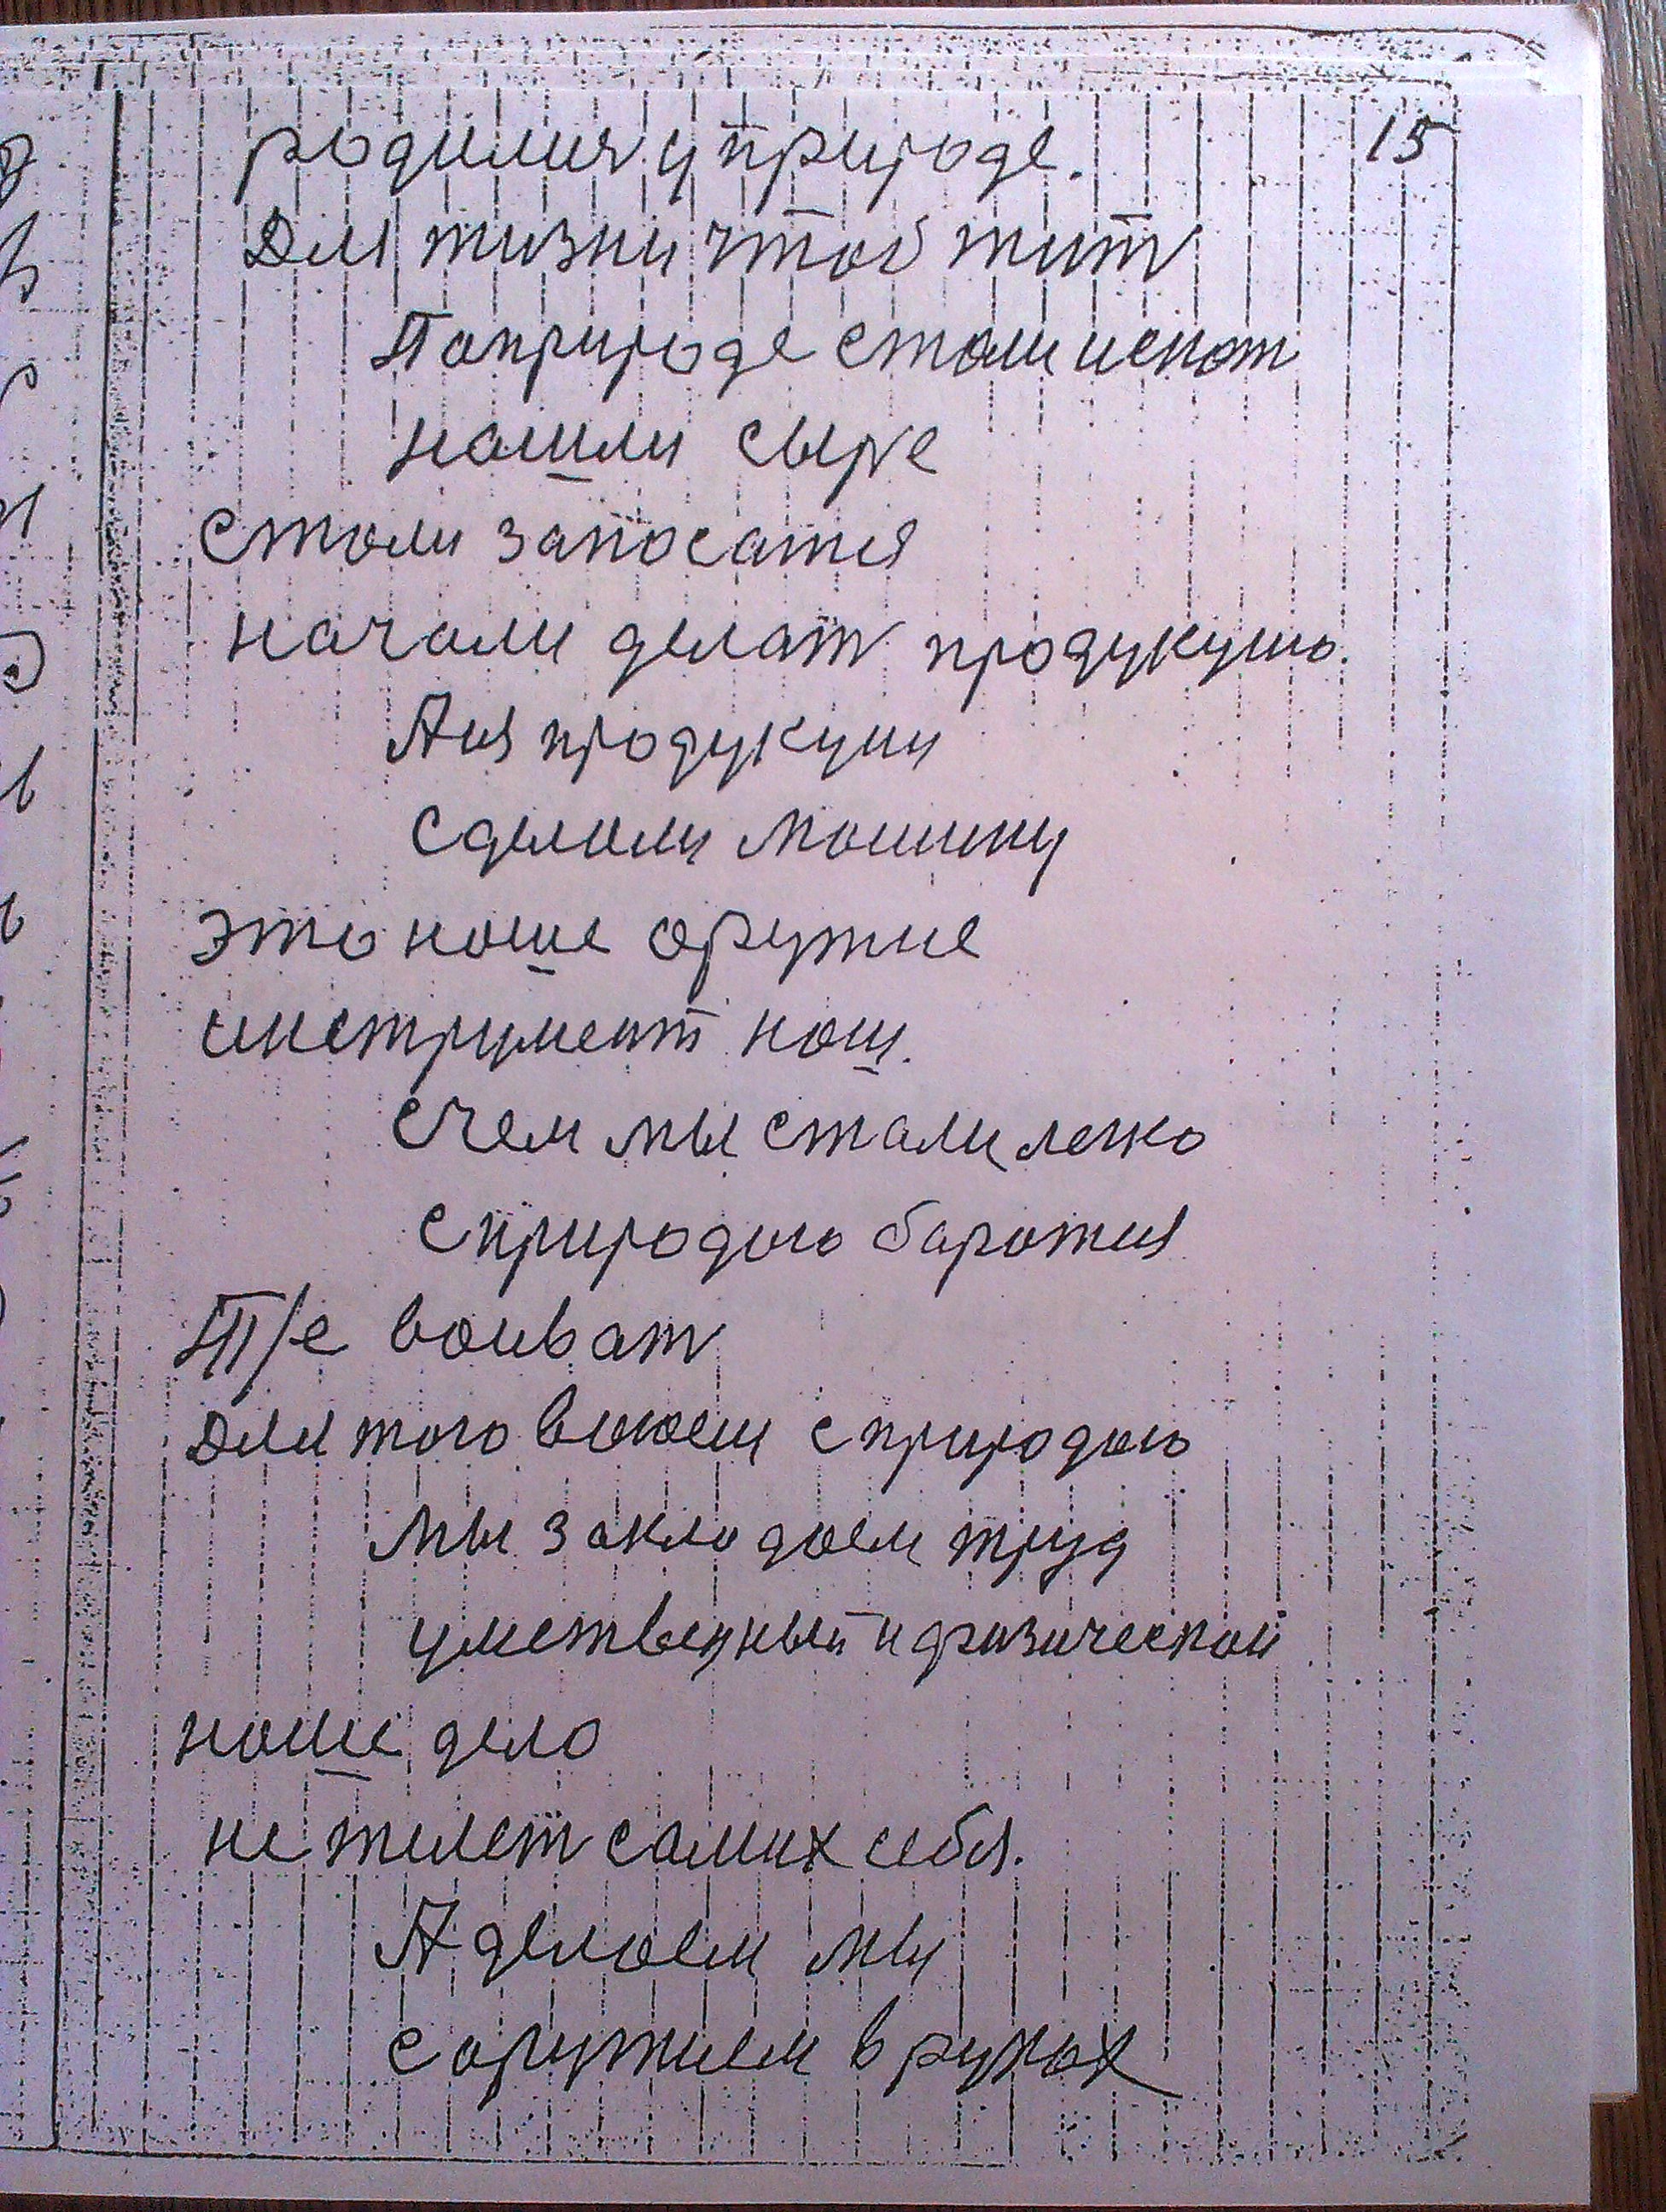 15
родилися у природе.
Для жизни чтоб жить
По природе стали искат
нашли сыре
стали запосатся
начали делат продукцию.
Аля продукции
сделали машину
это наше оружие
инструмент наш.
с чем мы стали легко
с природою баротися
Т/е воиват
для того воюем с природою
мы закладоем труд
умственный и физический
наше дело
не жилеть самих себя.
А делаем мы
с оружием в руках